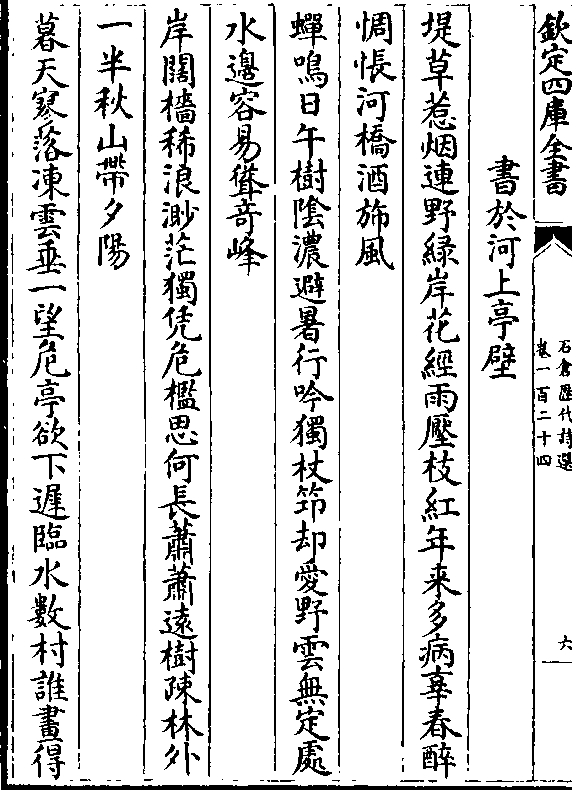 欽定四庫全書
石倉歷代詩選
卷一百二十四
六
書於河上亭壁
堤草惹烟連野緑岸花經雨壓枝紅年来多病辜春醉
惆悵河橋酒斾風
蟬鳴日午樹隂濃避暑行吟獨杖笻却愛野雲無定處
水邊容易聳竒峰
岸闊檣稀浪渺茫獨凭危檻思何長蕭蕭逺樹踈林外
一半秋山帶夕陽
暮天寥落凍雲垂一望危亭欲下遲臨水數村誰畫得